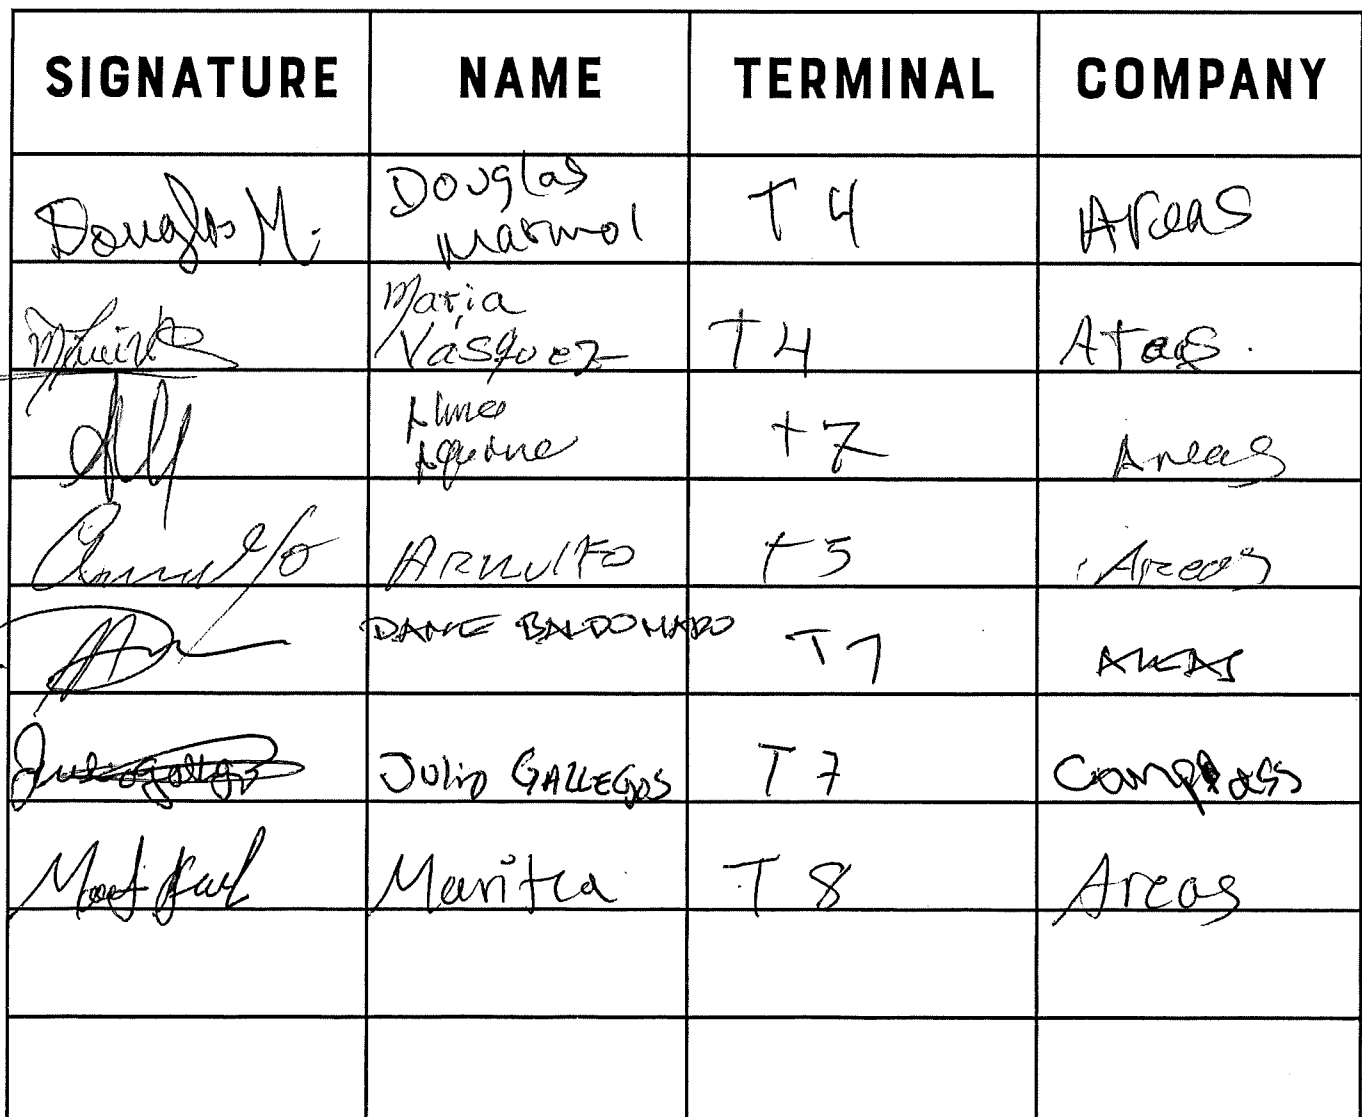 SIGNATURE NAME TERMINAL COMPANY
Douglas M. Douglas Marmol T4 Areas
Maria Vásquez T4 Areas
T7 Areas
Arnulfo ARNULFO T5 Areas
DANTE BALDOMADO T7 AREAS
Julio Gallegos JULIO GALLEGOS T7 Compass
Maritza T8 Areas